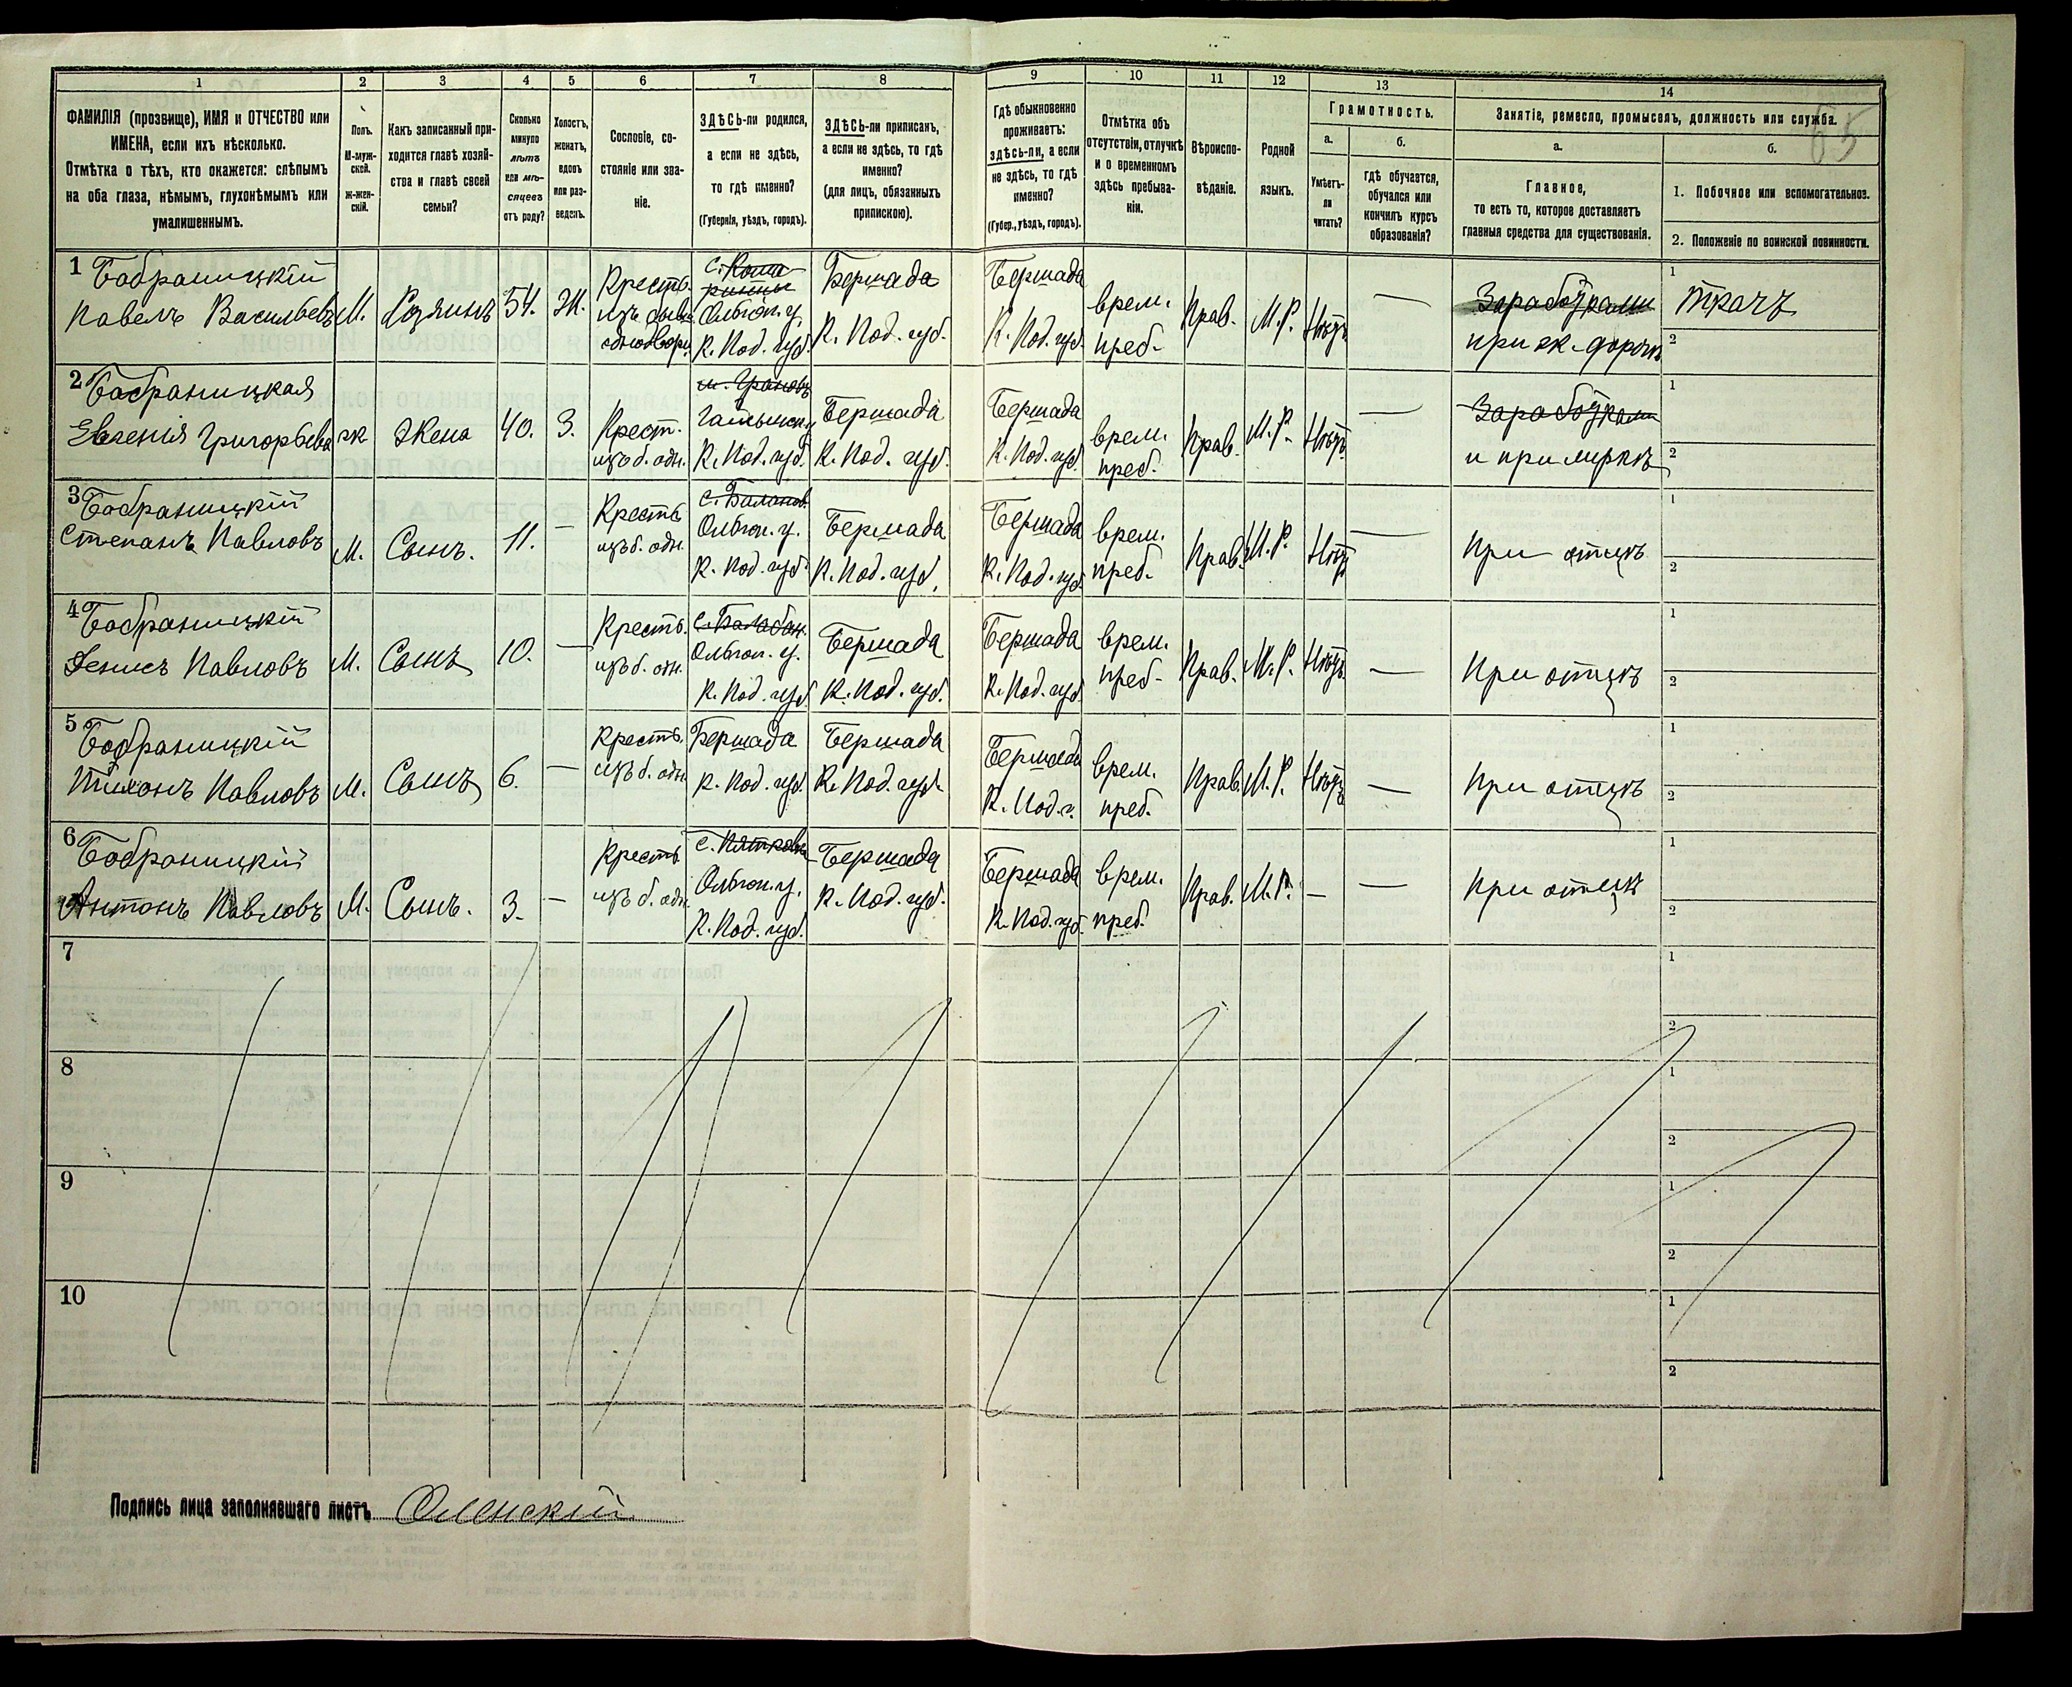 1 2 3 4 5 6 7 8 9 10 11 12 13 14
ФАМИЛІЯ (прозвище), ИМЯ и ОТЧЕСТВО или
ИМЕНА, если ихъ нѣсколько.
Отмѣтка о тѣхъ, кто окажется: слѣпымъ
на оба глаза, нѣмымъ, глухонѣмымъ или
умалишеннымъ.
Полъ.
М-муж-
ской.
ж-жен-
скій.
Какъ записанный при-
ходится главѣ хозяй-
ства и главѣ своей
семьи?
Сколько
минуло
лѣтъ
или мѣ-
сяцевъ
отъ роду?
Холостъ,
женатъ,
вдовъ
или раз-
веденъ.
Сословіе, со-
стояніе или зва-
ніе.
ЗДѢСЬ-ли родился,
а если не здѣсь,
то гдѣ именно?
(Губернія, уѣздъ, городъ).
ЗДѢСЬ-ли приписанъ,
а если не здѣсь, то гдѣ
именно?
(для лицъ, обязанныхъ
припискою).
Гдѣ обыкновенно
проживаетъ:
здѣсь-ли, а если
не здѣсь, то гдѣ
именно?
(Губер., уѣздъ, городъ).
Отмѣтка объ
отсутствіи, отлучкѣ
и о временномъ
здѣсь пребыва-
ніи.
Вѣроиспо-
вѣданіе.
Родной
языкъ.
Грамотность.
а.
Умѣетъ-
ли
читать?
б.
гдѣ обучается,
обучался или
кончилъ курсъ
образованія?
Занятіе, ремесло, промыселъ, должность или служба.
65
а.
Главное,
то есть то, которое доставляетъ
главныя средства для существованія.
б.
1. Побочное или вспомогательное.
2. Положеніе по воинской повинности.
1 Бобраницкій
Павелъ Васильевъ
М.
Хозяинъ
54.
Ж.
Крестъ.
изъ бывш.
однодворц.
Ольгоп. у.
К. Под. губ.
Бершада
К. Под. губ.
Бершада
К. Под. губ.
врем.
преб.
Прав.
М. Р.
Нѣтъ
—
Заработками
при ж. дорогѣ
1
Ткачъ
2
2 Бобраницкая
Евгенія Григорьева
ж
Жена
40.
З.
Крест.
изъ б. одн.
К. Под. губ.
Бершада
К. Под. губ.
Бершада
К. Под. губ.
врем.
преб.
Прав.
М. Р.
Нѣтъ
—
Заработками
и при мужѣ
1
2
3 Бобраницкій
Степанъ Павловъ
М.
Сынъ.
11.
—
Крестъ
изъ б. одн.
Ольгоп. у.
К. Под. губ.
Бершада
К. Под. губ.
Бершада
К. Под. губ.
врем.
преб.
Прав.
М. Р.
Нѣтъ
—
При отцѣ
1
2
4 Бобраницкій
Денисъ Павловъ
М.
Сынъ
10.
—
Крестъ.
изъ б. одн.
с. Балабан.
Ольгоп. у.
К. Под. губ.
Бершада
К. Под. губ.
Бершада
К. Под. губ.
врем.
преб.
Прав.
М. Р.
Нѣтъ
—
При отцѣ
1
2
5 Бобраницкій
Тихонъ Павловъ
М.
Сынъ
6.
—
Крестъ.
изъ б. одн.
Бершада
К. Под. губ.
Бершада
К. Под. губ.
Бершада
К. Под. г.
врем.
преб.
Прав.
М. Р.
Нѣтъ
—
При отцѣ
1
2
6 Бобраницкій
Антонъ Павловъ
М.
Сынъ.
3.
—
Крестъ
изъ б. одн.
с. Пятковка
Ольгоп. у.
К. Под. губ.
Бершада
К. Под. губ.
Бершада
К. Под. губ.
врем.
преб.
Прав.
М. Р.
—
—
При отцѣ
1
2
7
1
2
8
1
2
9
1
2
10
1
2
Подпись лица заполнявшаго листъ Оленскій